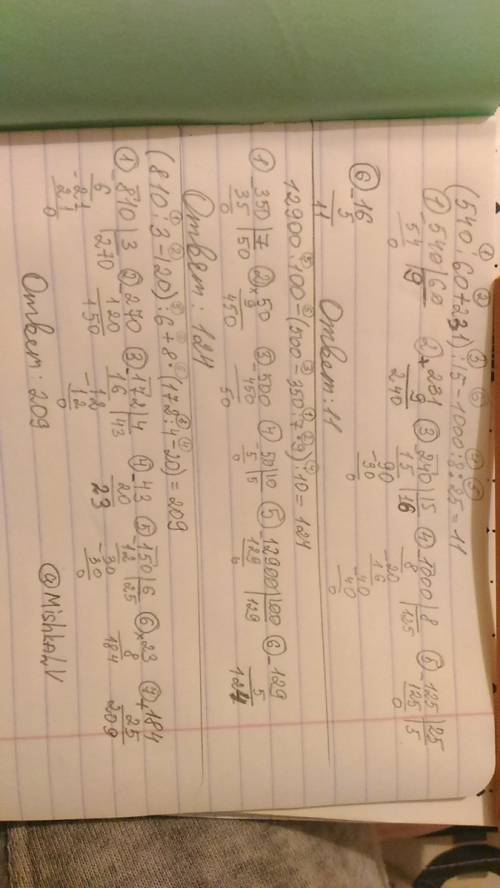 (540:60+231):15-1000:8:25=11
① 540|60 ② +231 ③ 240|15 ④ 1000|8 ⑤ -125|25
54 |9 9 15 |16 8 |125 125|5
0 240 -90 -20 0
90 16
0 -40
40
0
⑥ -16
5
11
Ответ: 11
12900:100-(500-350:7·9):10=124
① 350|7 ② ×50 ③ -500 ④ 50|10 ⑤ 12900|100 ⑥ -129
35 |50 9 450 5 |5 129 |129 5
0 450 50 0 0 124
Ответ: 124
(810:3-120):6+8·(172:4-20)=209
① 810|3 ② -270 ③ 172|4 ④ -43 ⑤ 150|6 ⑥ ×23 ⑦ +184
6 |270 120 16 |43 20 12 |25 8 25
-21 150 -12 23 -30 184 209
21 12 30
0 0 0
Ответ: 209
@MishkaLV